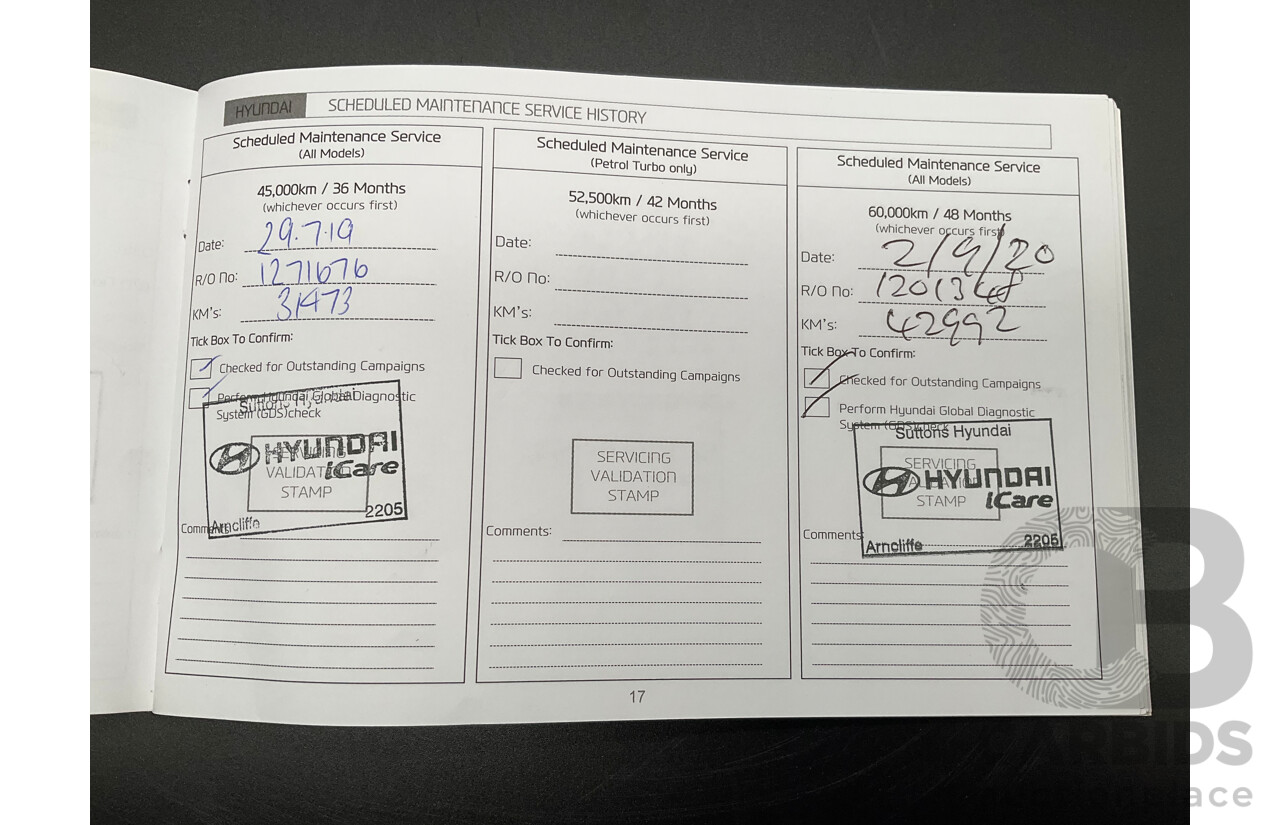 HYUNDAI SCHEDULED MAINTENANCE SERVICE HISTORY
Scheduled Maintenance Service
(All Models)
45,000km / 36 Months
(whichever occurs first)
Date: 29.7.19
R/O No: 1271676
KM's: 31473
Tick Box To Confirm:
Checked for Outstanding Campaigns
Perform Hyundai Global Diagnostic
System (GDS)check
Suttons Hyundai
HYUNDAI
iCare
SERVICING
VALIDATION
STAMP
Arncliffe 2205
Comments:
Scheduled Maintenance Service
(Petrol Turbo only)
52,500km / 42 Months
(whichever occurs first)
Date:
R/O No:
KM's:
Tick Box To Confirm:
Checked for Outstanding Campaigns
SERVICING
VALIDATION
STAMP
Comments:
Scheduled Maintenance Service
(All Models)
60,000km / 48 Months
(whichever occurs first)
Date: 2/9/20
R/O No: 1201348
KM's: 42992
Tick Box To Confirm:
Checked for Outstanding Campaigns
Perform Hyundai Global Diagnostic
System (GDS)check
Suttons Hyundai
HYUNDAI
iCare
SERVICING
VALIDATION
STAMP
Arncliffe 2205
Comments:
17
CARBIDS